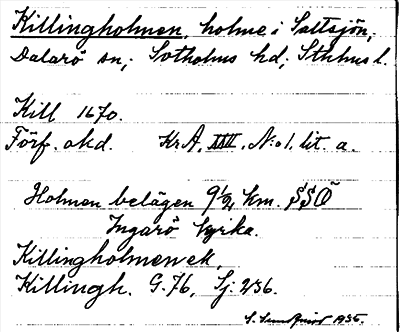 Killingholmen, holme i Saltsjön,
Dalarö sn; Sotholms hd; Sthlms l.
Kill 1670.
Förf. okd. KrA, XXII, N:o 1. lit. a.
Holmen belägen 9½ km. SSÖ
Ingarö kyrka.
Killingholmen ek,
Killingh. G. 76, Sj: 236.
1935.